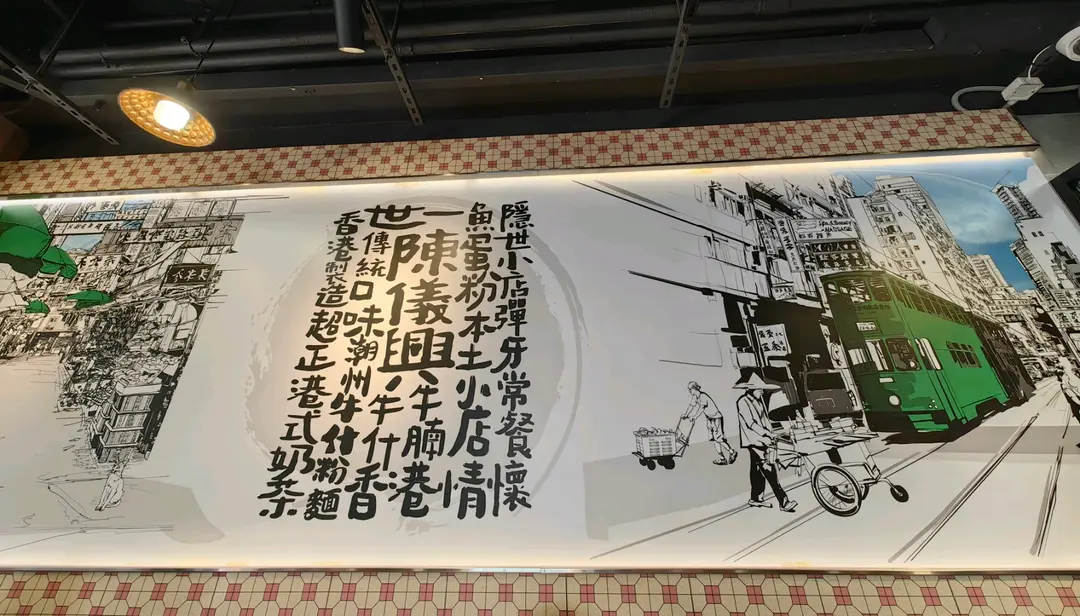 隱世小店彈牙常餐懷
魚蛋粉本土小店情
一陳儀興、牛腩港
世、牛什香
傳統口味潮州牛什粉麵
香港製造超正港式奶茶
MASSAGE